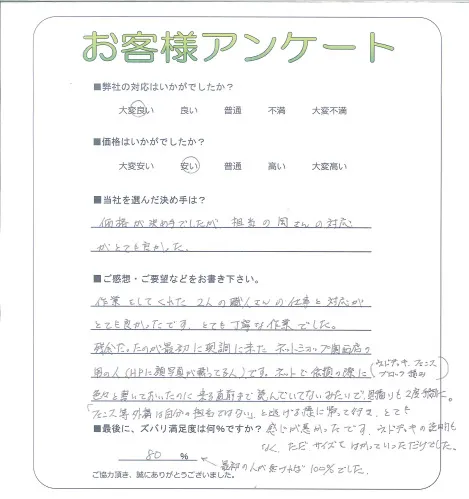 お客様アンケート
■弊社の対応はいかがでしたか？
大変良い 良い 普通 不満 大変不満
■価格はいかがでしたか？
大変安い 安い 普通 高い 大変高い
■当社を選んだ決め手は？
価格が決め手でしたが 担当の岡さんの対応
がとても良かった。
■ご感想・ご要望などをお書き下さい。
作業をしてくれた 2人の職人さんの仕事と対応が
とても良かったです。とても丁寧な作業でした。
残念だったのが最初に現調に来た ネットショップ
の人(HPに顔写真が載ってる人)です。ネットで依頼の際に(ウッドデッキ、フェンス
ブロック塀の
色々と書いておいたのに 来る直前まで読んでいてないみたいで、見積りも2度手間に。
「フェンス等外構は自分の担当ではない」と逃げる様に帰って行き、とても
■最後に、ズバリ満足度は何％ですか？ 感じが悪かったです。ウッドデッキの説明も
なく、ただサイズをはかっていっただけでした。
80 %
最初の人が来なければ 100%でした。
ご協力頂き、誠にありがとうございました。